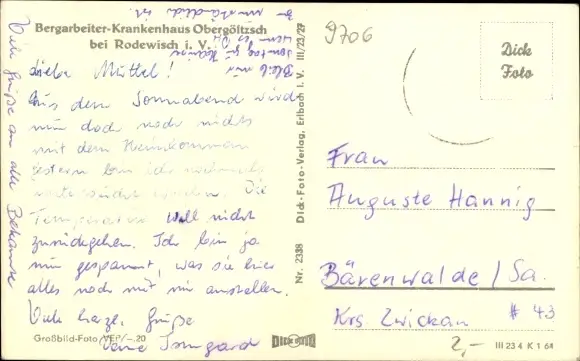 Bergarbeiter-Krankenhaus Obergöltzsch
bei Rodewisch i. V.
Liebe Muttel!
Aus dem Sonnabend wird
nun doch noch nichts
mit dem Heimkommen
gestern bin ich nochmals
untersucht worden. Die
Temperatur will nicht
zurückgehen. Ich bin ja
nur gespannt, was sie hier
alles noch mit mir anstellen.
Viele herzl. Grüße
Deine Irmgard
Viele Grüße an alle Bekannte
Großbild-Foto VEP/–.20
Nr. 2338 Dick-Foto-Verlag, Erlbach i. V. III/23/27
DICK FOTO
9706
Dick
Foto
Frau
Auguste Hannig
Bärenwalde / Sa.
Krs. Zwickau # 43
2,-
III 23 4 K 1 64